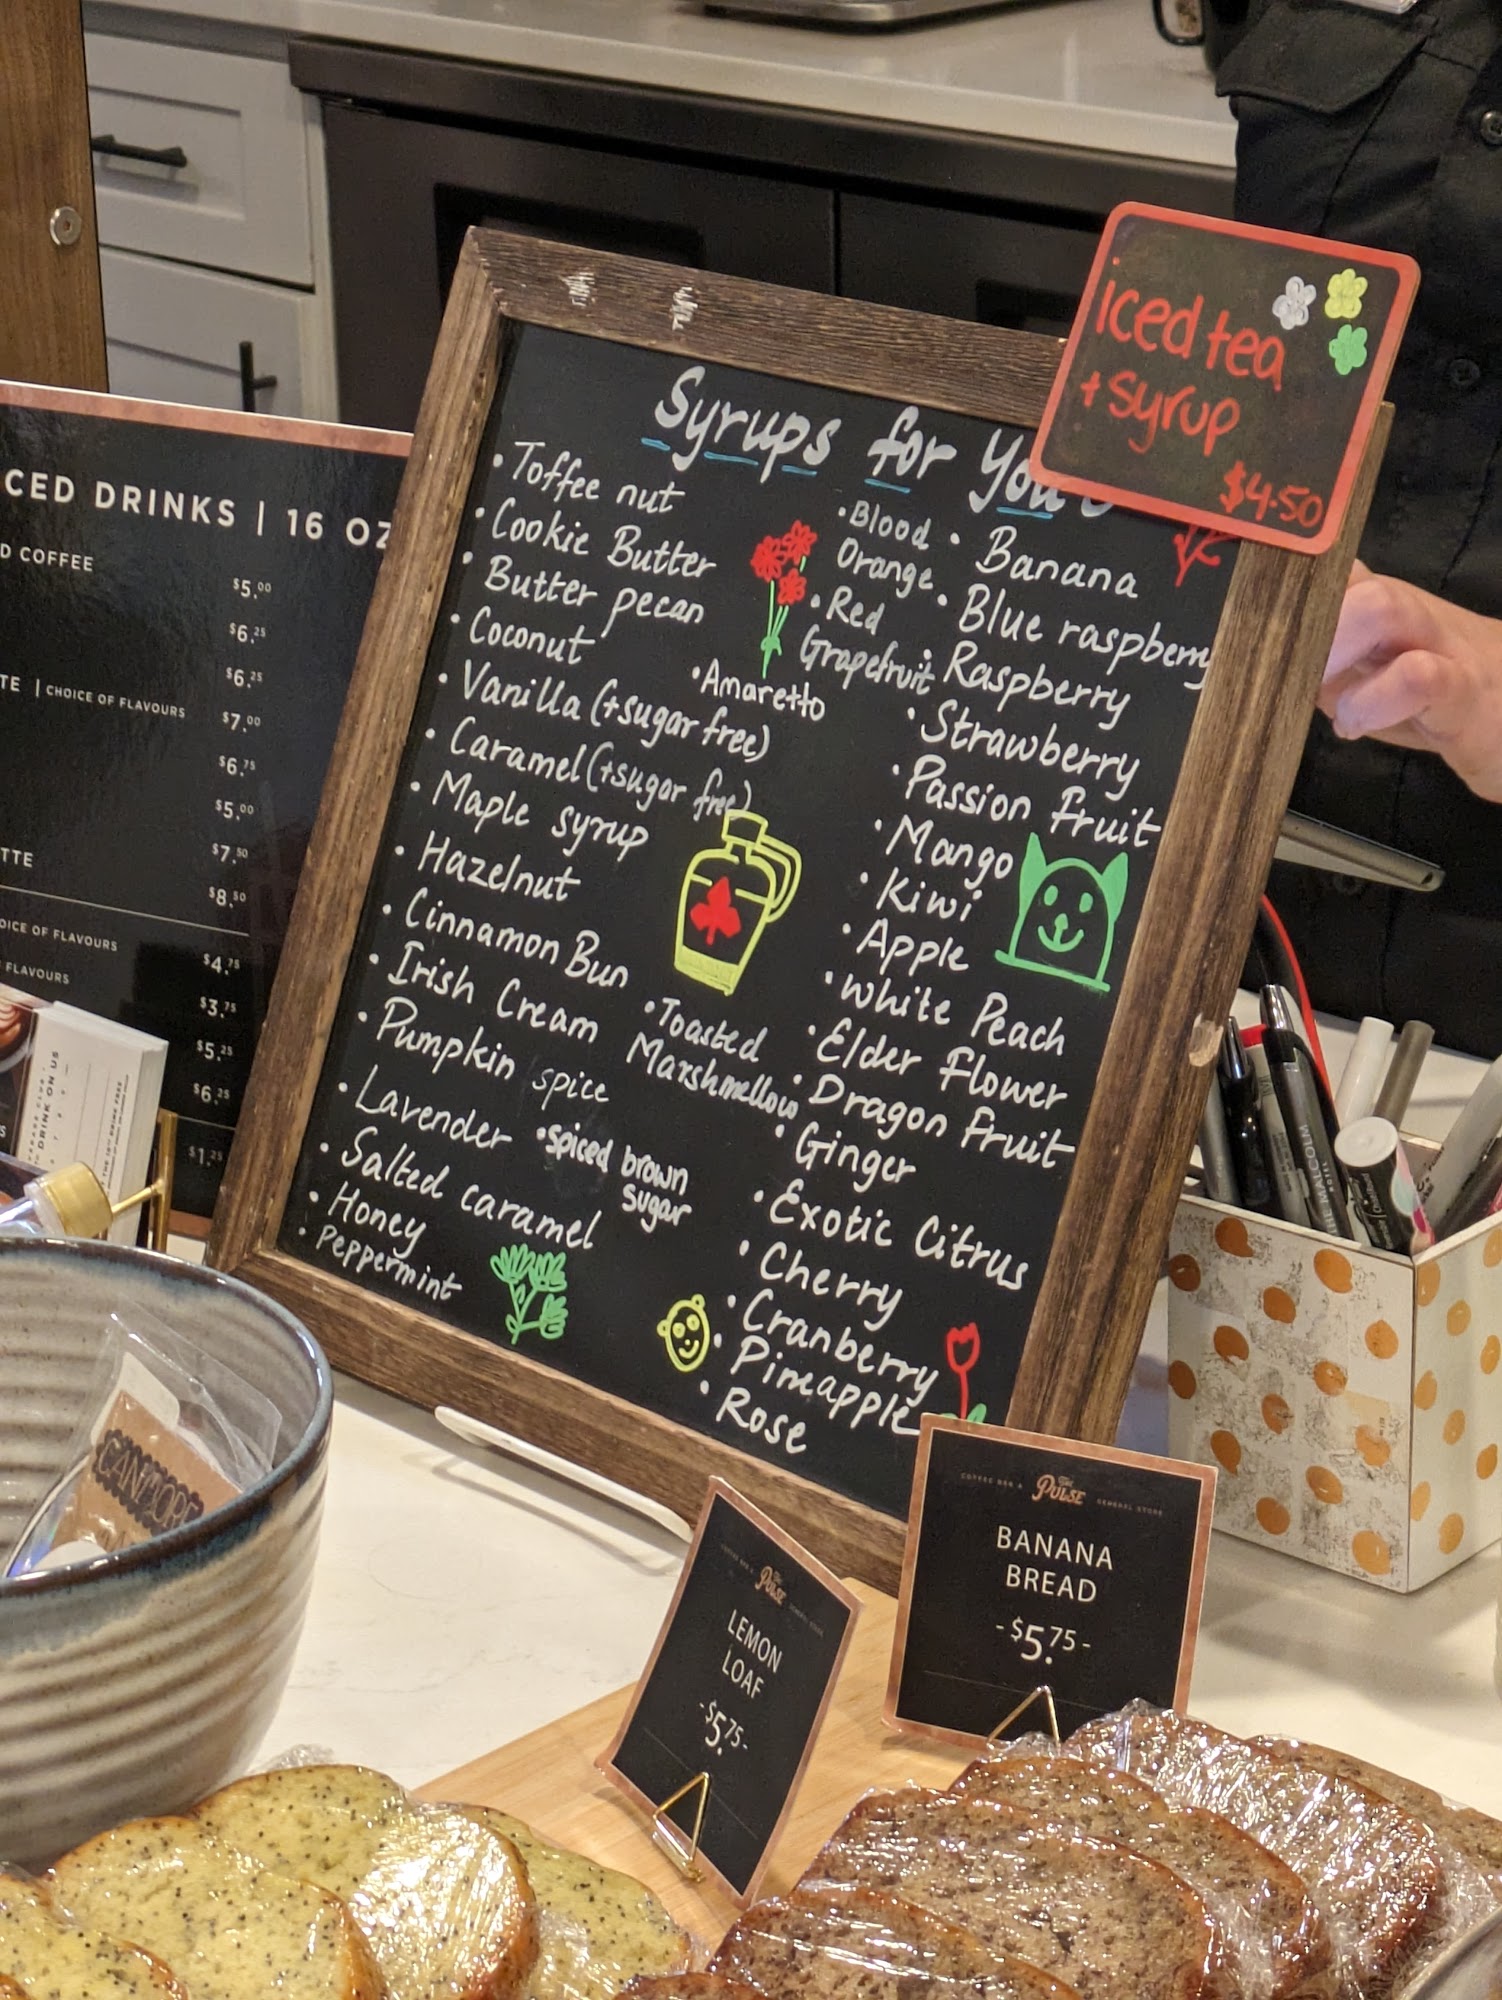 CED DRINKS | 16 OZ
D COFFEE
$5.00
$6.25
$6.25
TE | CHOICE OF FLAVOURS $7.00
$6.75
$5.00
$7.50
TTE
$8.50
OICE OF FLAVOURS
$4.75
FLAVOURS
$3.75
$5.25
$6.25
$1.25
DRINK ON US
Syrups for You
• Toffee nut
• Cookie Butter
• Butter pecan
• Coconut
• Vanilla (+sugar free)
• Caramel (+sugar free)
• Maple syrup
• Hazelnut
• Cinnamon Bun
• Irish Cream
• Pumpkin spice
• Lavender
• Salted caramel
• Honey
• Peppermint
• Blood
Orange
• Red
Grapefruit
• Amaretto
• Toasted
Marshmellow
• spiced brown
sugar
• Banana
• Blue raspberry
• Raspberry
• Strawberry
• Passion Fruit
• Mango
• Kiwi
• Apple
• White Peach
• Elder Flower
• Dragon Fruit
• Ginger
• Exotic Citrus
• Cherry
• Cranberry
• Pineapple
• Rose
iced tea
+ syrup
$4.50
THE MALCOLM
CANMORE
COFFEE BAR & The PULSE GENERAL STORE
LEMON
LOAF
-$5.75-
COFFEE BAR & The PULSE GENERAL STORE
BANANA
BREAD
-$5.75-